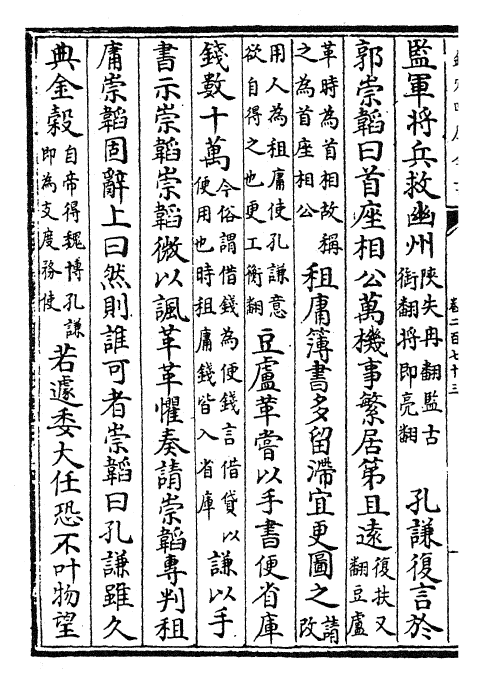 監軍將兵救幽州陝失冉翻監古銜翻將即亮翻 孔謙復言於
郭崇韜曰首座相公萬機事繁居第且遠復扶又翻豆盧
革時為首相故稱之為首座相公租庸簿書多留滯宜更圖之請改
用人為租庸使孔謙意欲自得之也更工衡翻豆盧革嘗以手書便省庫
錢數十萬今俗謂借錢為便錢言借貸以便用也時租庸錢皆入省庫謙以手
書示崇韜崇韜微以諷革革懼奏請崇韜專判租
庸崇韜固辭上曰然則誰可者崇韜曰孔謙雖久
典金穀自帝得魏博孔謙即為支度務使若遽委大任恐不叶物望
卷二百七十三